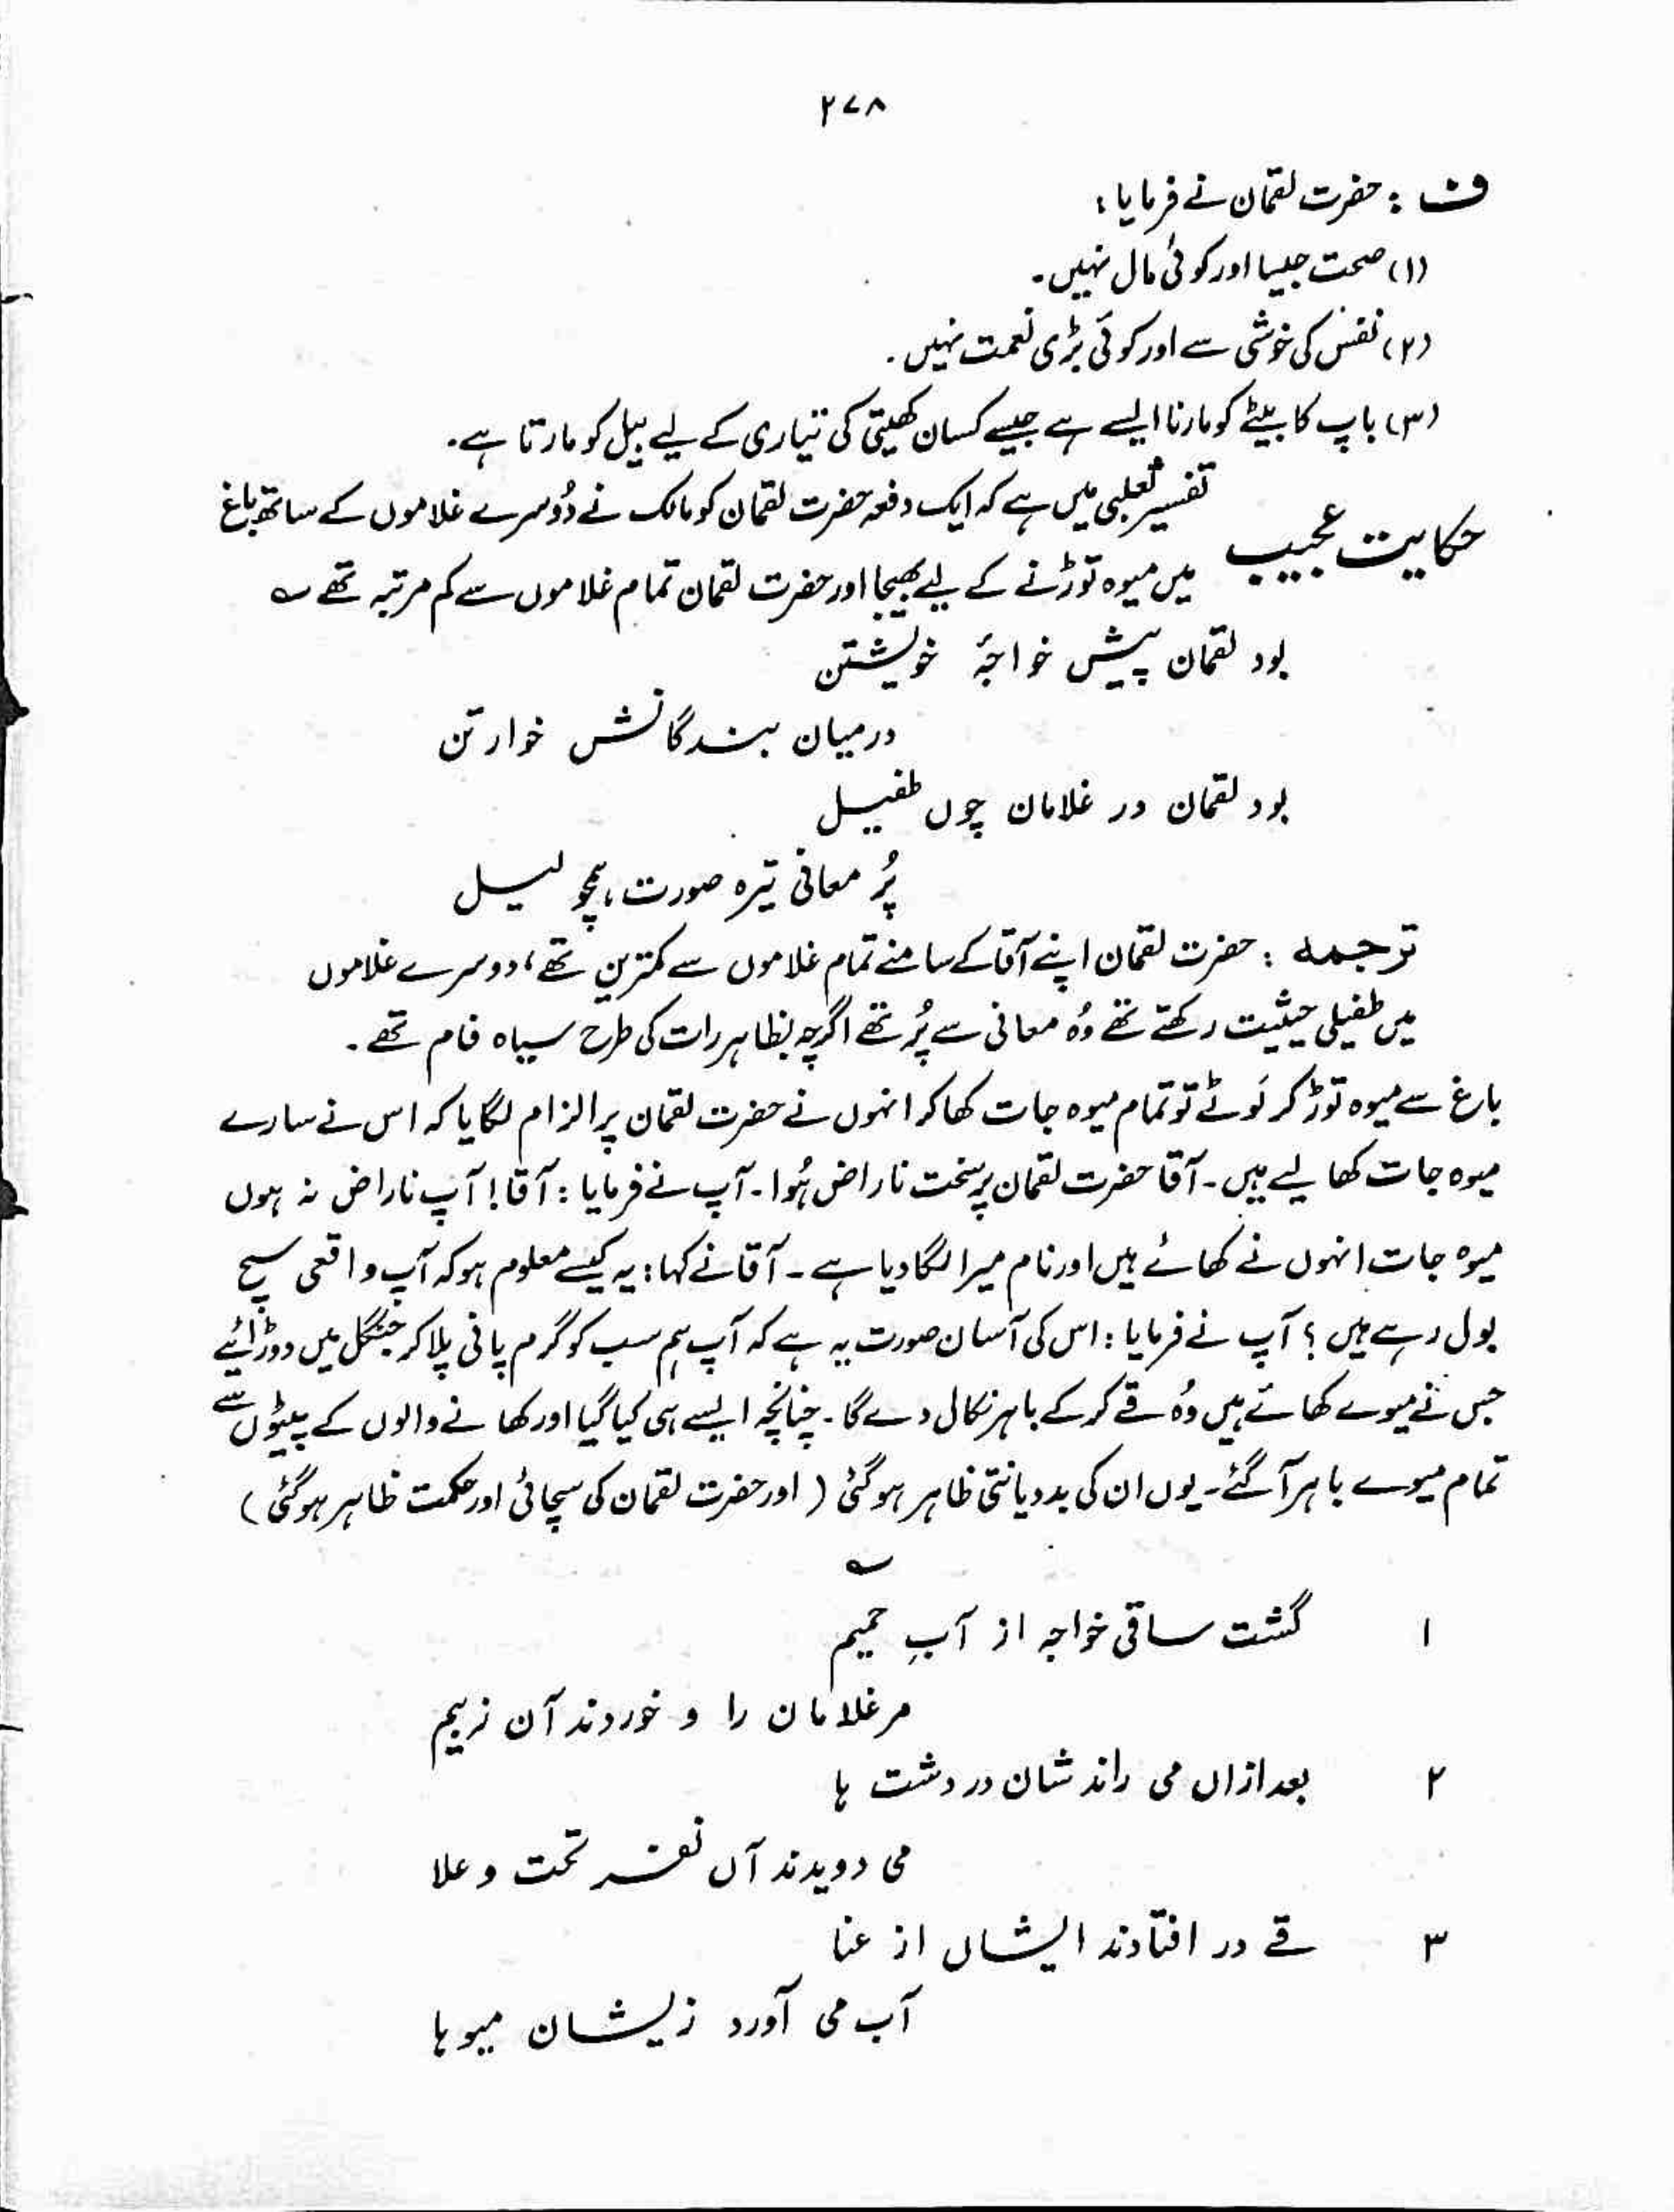 ۲۷۸
ف : حضرت لقمان نے فرمایا :
(۱) صحت جیسا اور کوئی مال نہیں۔
(۲) نفس کی خوشی سے اور کوئی بڑی نعمت نہیں۔
(۳) باپ کا بیٹے کو مارنا ایسے ہے جیسے کسان کھیتی کی تیاری کے لیے بیل کو مارتا ہے۔
حکایت عجیب تفسیر ثعلبی میں ہے کہ ایک دفعہ حضرت لقمان کو مالک نے دُوسرے غلاموں کے ساتھ باغ
میں میوہ توڑنے کے لیے بھیجا اور حضرت لقمان تمام غلاموں سے کم مرتبہ تھے ؎
بود لقمان پیش خواجۂ خویشتن
درمیان بندگانش خوار تن
بود لقمان در غلامان چوں طفیل
پُر معانی تیرہ صورت ہمچو لیل
ترجمہ : حضرت لقمان اپنے آقا کے سامنے تمام غلاموں سے کمترین تھے، دوسرے غلاموں
میں طفیلی حیثیت رکھتے تھے وُہ معانی سے پُر تھے اگرچہ بظاہر رات کی طرح سیاہ فام تھے۔
باغ سے میوہ توڑ کر لَوٹے تو تمام میوہ جات کھا کر انہوں نے حضرت لقمان پر الزام لگایا کہ اس نے سارے
میوہ جات کھا لیے ہیں۔ آقا حضرت لقمان پر سخت ناراض ہُوا۔ آپ نے فرمایا : آقا! آپ ناراض نہ ہوں
میوہ جات انہوں نے کھائے ہیں اور نام میرا لگا دیا ہے۔ آقا نے کہا : یہ کیسے معلوم ہو کہ آپ واقعی سچ
بول رہے ہیں ؟ آپ نے فرمایا : اس کی آسان صورت یہ ہے کہ آپ ہم سب کو گرم پانی پلا کر جنگل میں دوڑائیے
جس نے میوے کھائے ہیں وُہ قے کر کے باہر نکال دے گا۔ چنانچہ ایسے ہی کیا گیا اور کھانے والوں کے پیٹوں سے
تمام میوے باہر آ گئے۔ یوں ان کی بددیانتی ظاہر ہو گئی ( اور حضرت لقمان کی سچائی اور حکمت ظاہر ہو گئی )
؎
۱ گشت ساقی خواجہ از آبِ حمیم
مر غلامان را و خوردند آن زبیم
۲ بعد ازاں می راند شان در دشت ہا
می دویدند آں نفر تحت و علا
۳ قے در افتادند ایشاں از عنا
آب می آورد زیشان میوہا